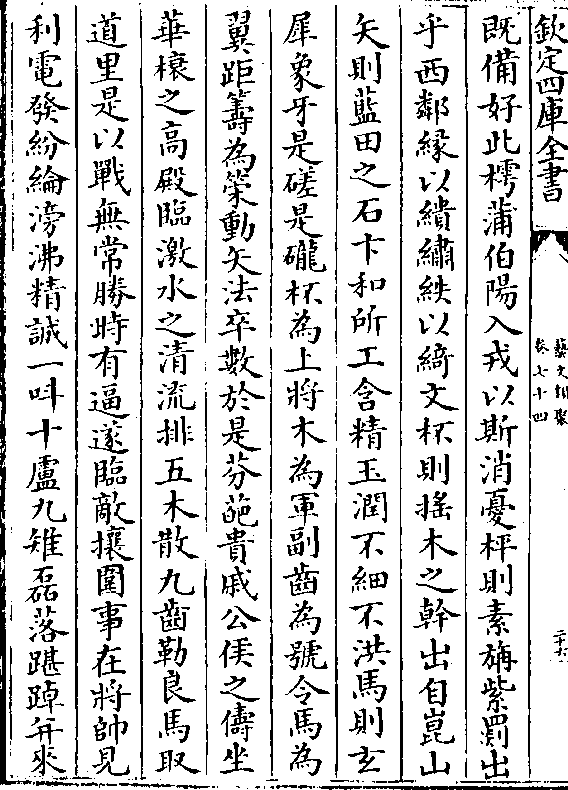 欽定四庫全書
藝文類聚
卷七十四
二十六
既備好此樗蒲伯陽入戎以斯消憂枰則素旃紫罽出
乎西鄰緣以繢繡紩以綺文杯則搖木之幹出自崑山
矢則藍田之石卞和所工含精玉潤不細不洪馬則玄
犀象牙是磋是礲杯為上將木為軍副齒為號令馬為
翼距籌為策動矢法卒數於是芬葩貴戚公侯之儔坐
華榱之高殿臨激水之清流排五木散九齒勒良馬取
道里是以戰無常勝時有逼遂臨敵攘圍事在將帥見
利電發紛綸滂沸精誠一叫十盧九雉磊落踸踔并來